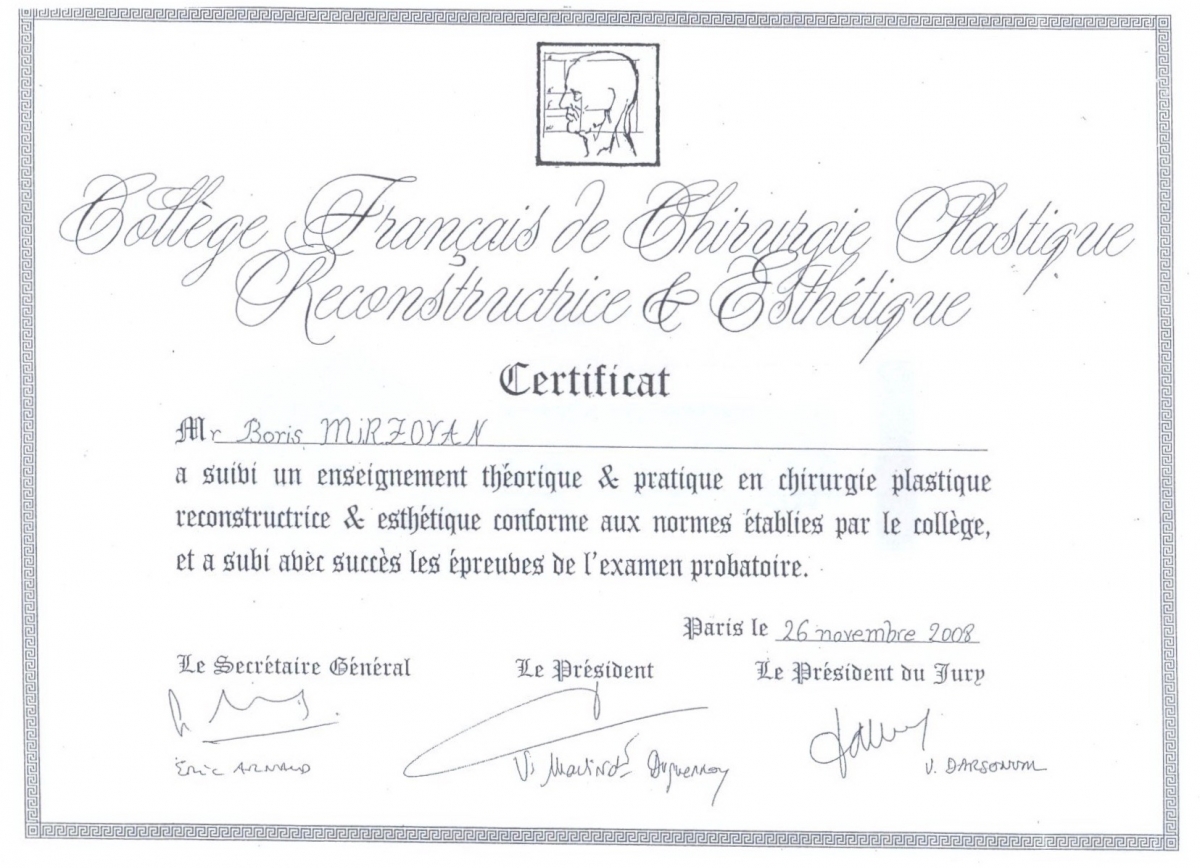 Collège Français de Chirurgie Plastique
Reconstructrice & Esthétique
Certificat
Mr Boris MiRZOYAN
a suivi un enseignement théorique & pratique en chirurgie plastique
reconstructrice & esthétique conforme aux normes établies par le collège,
et a subi avèc succès les épreuves de l'examen probatoire.
Paris le 26 novembre 2008
Le Secrétaire Général Le Président Le Président du Jury
ÉRIC ARNAUD V. V. DARSONVAL